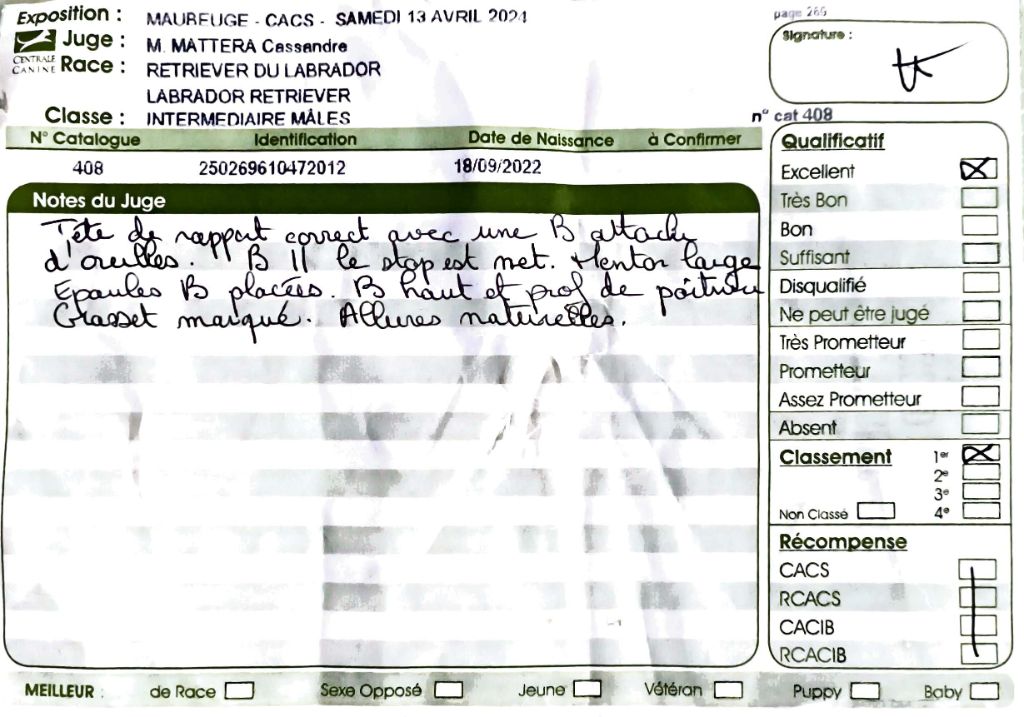 Exposition : MAUBEUGE - CACS - SAMEDI 13 AVRIL 2024
page 265
Juge : M. MATTERA Cassandre
Signature :
CENTRALE CANINE
Race : RETRIEVER DU LABRADOR
LABRADOR RETRIEVER
Classe : INTERMEDIAIRE MÂLES
n° cat 408
N° Catalogue Identification Date de Naissance à Confirmer
408 250269610472012 18/09/2022
Notes du Juge
Tête de rapport correct avec une B attache
d'oreilles. B // le stop est net. Menton large
Epaules B placées. B haut et prof de poitrine
Grasset marqué. Allures naturelles.
Qualificatif
Excellent
Très Bon
Bon
Suffisant
Disqualifié
Ne peut être jugé
Très Prometteur
Prometteur
Assez Prometteur
Absent
Classement 1er
2e
3e
Non Classé 4e
Récompense
CACS
RCACS
CACIB
RCACIB
MEILLEUR : de Race Sexe Opposé Jeune Vétéran Puppy Baby